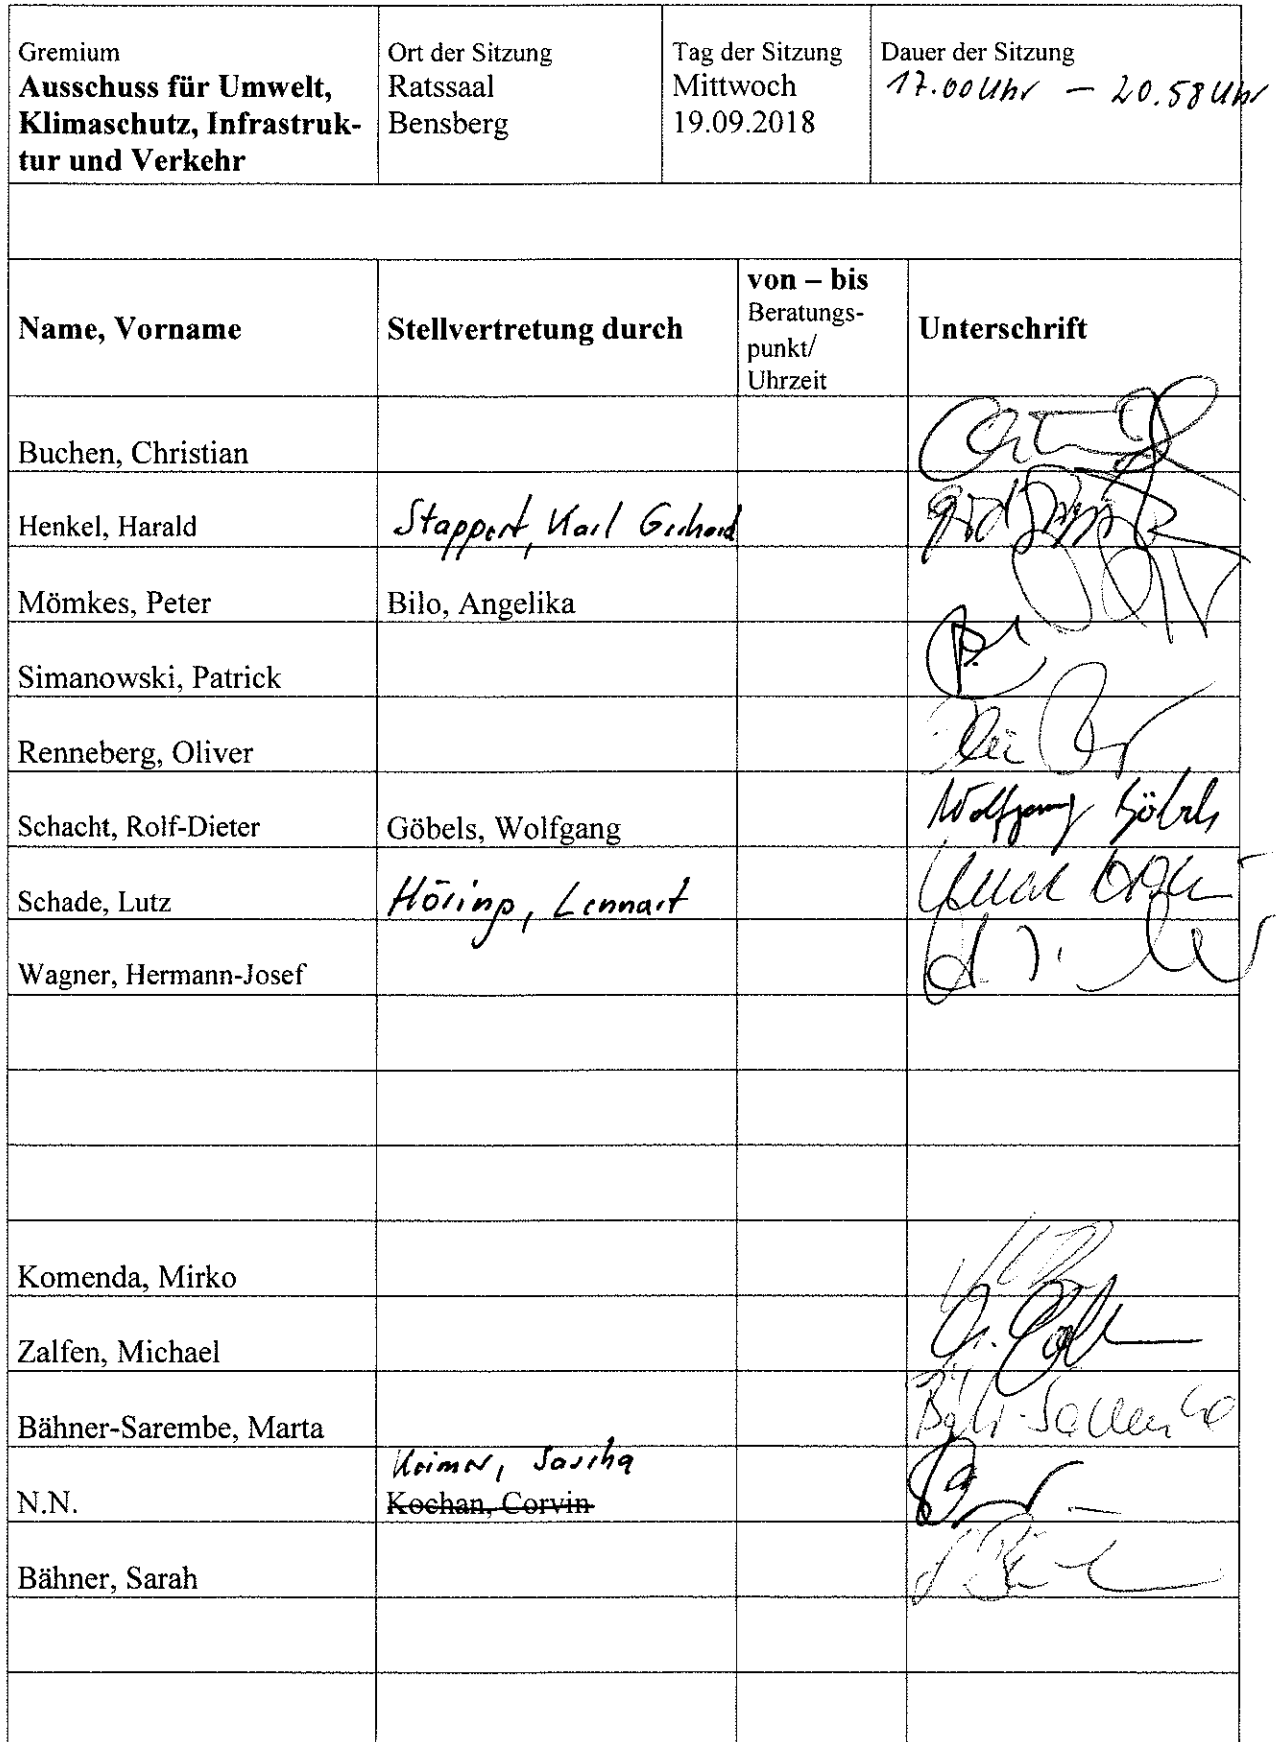 Gremium
Ausschuss für Umwelt,
Klimaschutz, Infrastruk-
tur und Verkehr
Ort der Sitzung
Ratssaal
Bensberg
Tag der Sitzung
Mittwoch
19.09.2018
Dauer der Sitzung
17.00 Uhr – 20.58 Uhr
Name, Vorname
Stellvertretung durch
von – bis
Beratungs-
punkt/
Uhrzeit
Unterschrift
Buchen, Christian
Henkel, Harald Stappert, Karl Gerhard
Mömkes, Peter Bilo, Angelika
Simanowski, Patrick
Renneberg, Oliver
Schacht, Rolf-Dieter Göbels, Wolfgang Wolfgang Göbels
Schade, Lutz Höring, Lennart
Wagner, Hermann-Josef
Komenda, Mirko
Zalfen, Michael
Bähner-Sarembe, Marta
Sascha
N.N. Kochan, Corvin
Bähner, Sarah